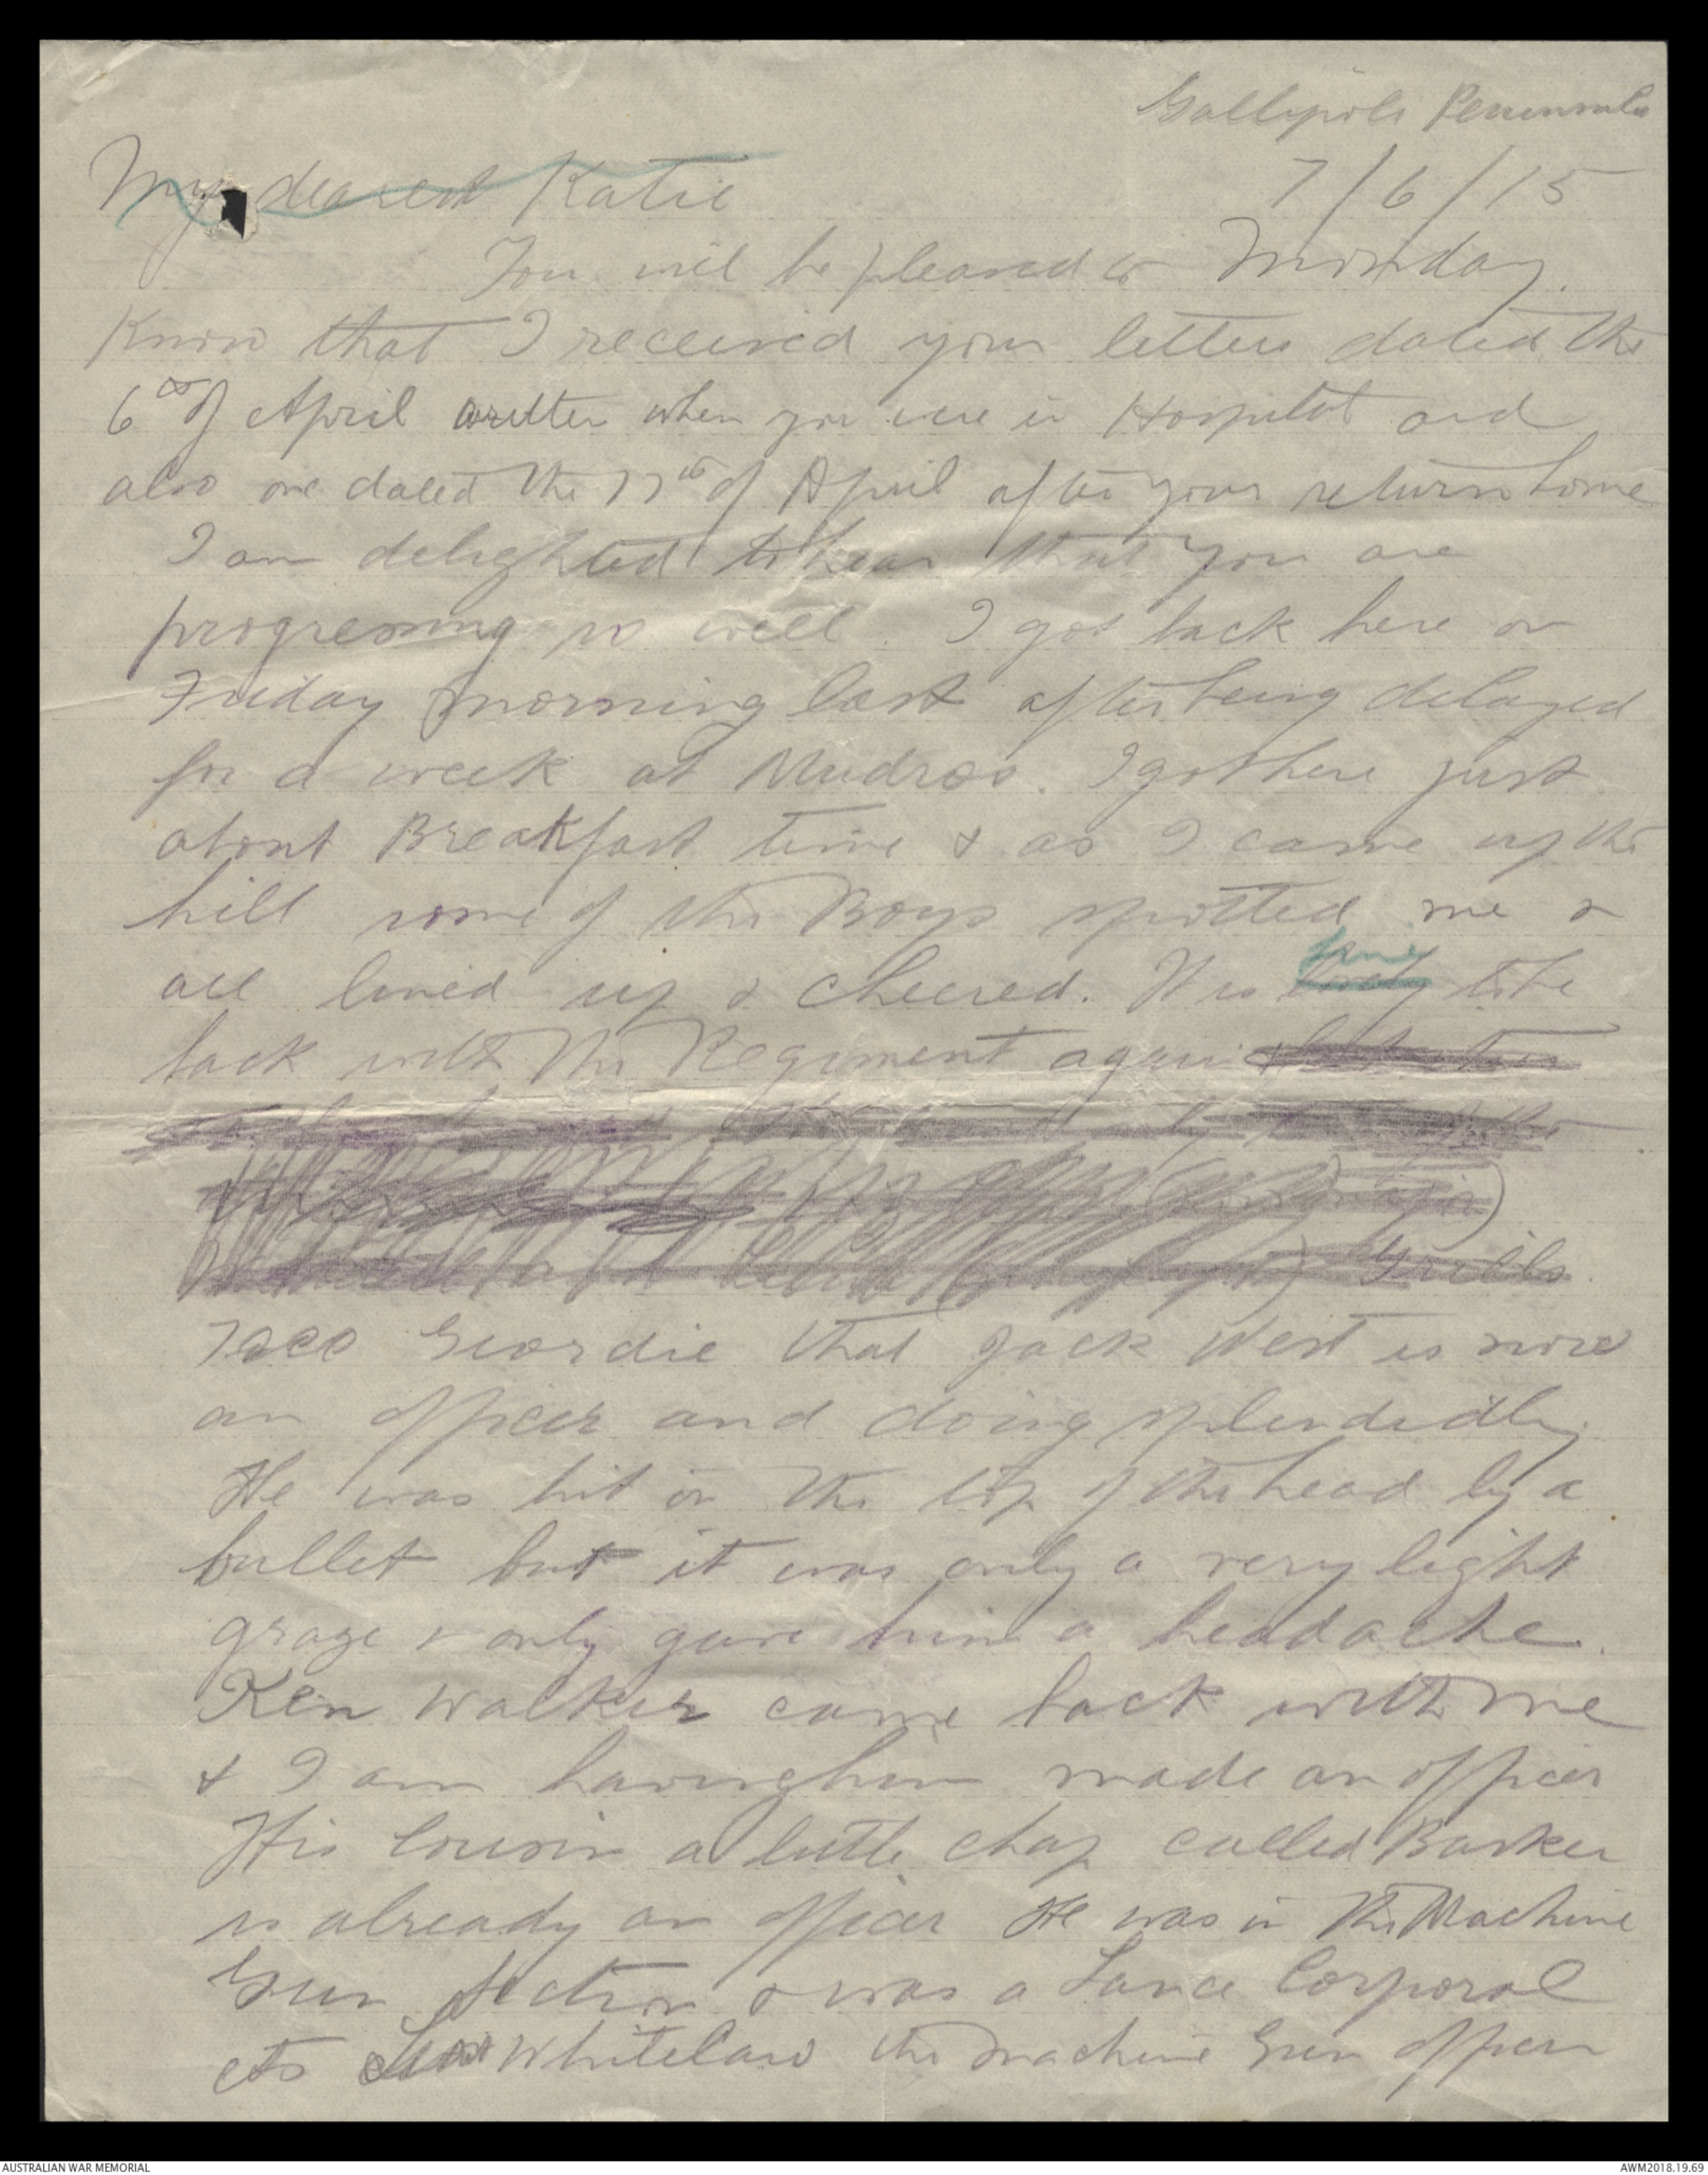 Gallipoli Peninsula
My dearest Katie
7/6/15
You will be pleased to Monday.
Know that I received your letters dated the
6th of April written when you were in Hospital and
also one dated the 17th of April after your return home
I am delighted to hear that you are
progressing so well. I got back here on
Friday morning last after being delayed
for a week at Mudros. I got here just
about Breakfast time & as I came up the
hill some of the Boys spotted me &
all lined up & cheered. It is fine to be
back with the Regiment again
Grills.
I see Geordie that Jack West is now
an officer and doing splendidly.
He was hit on the top of the head by a
bullet but it was only a very light
graze & only gave him a headache.
Ken Walker came back with me
& I am having him made an officer
His cousin a little chap called Barker
is already an officer He was in the Machine
Gun Section & was a Lance Corporal
Whitelaw the Machine Gun officer
AUSTRALIAN WAR MEMORIAL
AWM2018.19.69